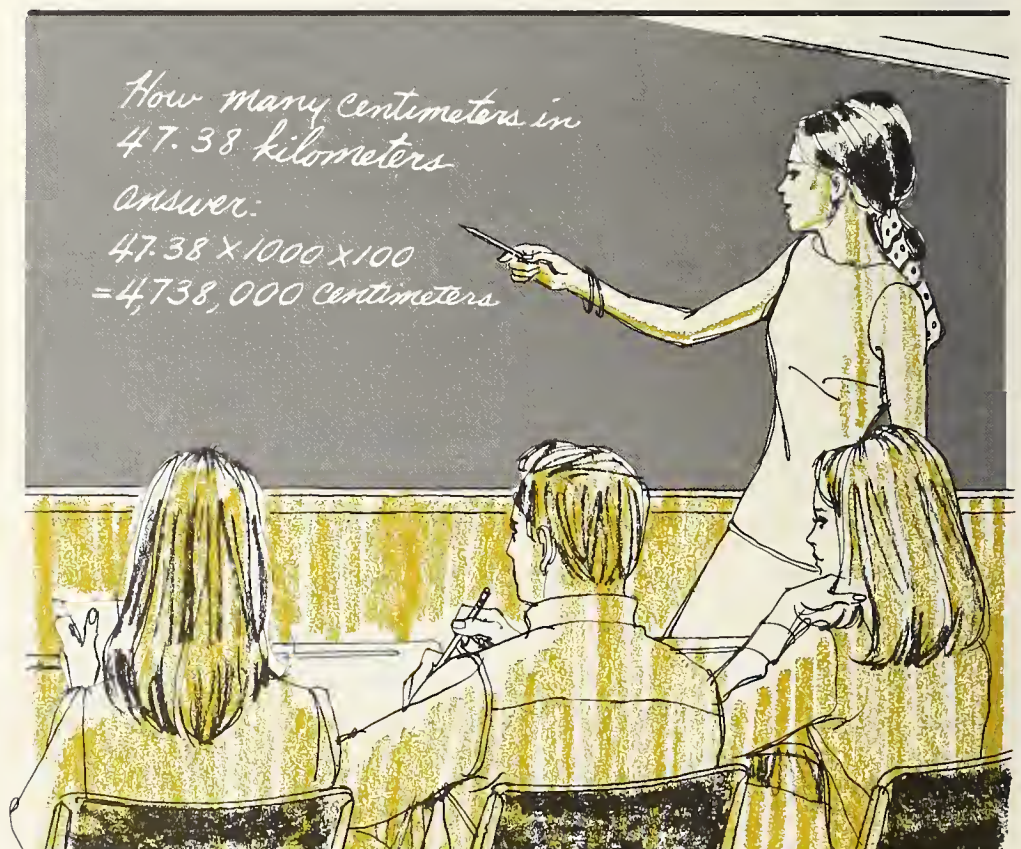 How many centimeters in
47.38 kilometers
answer:
47.38 x 1000 x 100
= 4,738,000 centimeters